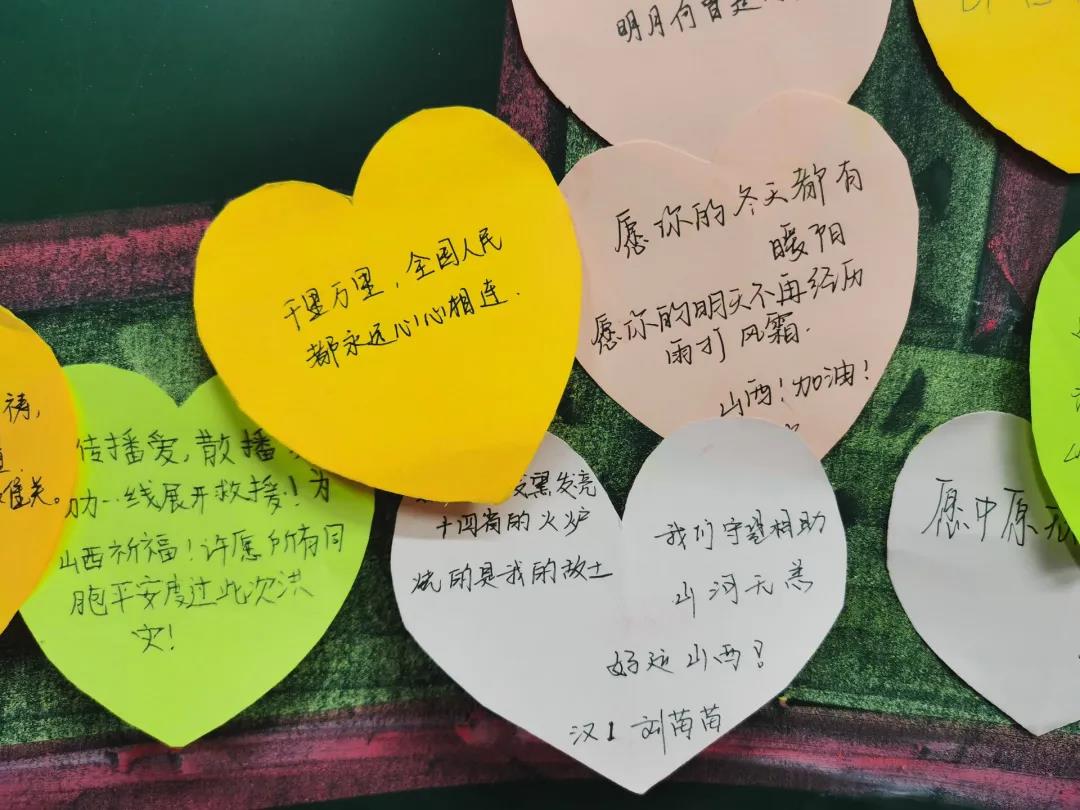 明月何曾是
千里万里，全国人民
都永远心心相连.
愿你的冬天都有
暖阳
愿你的明天不再经历
雨打风霜.
山西！加油！
祷,
难关。
传播爱,散播
助一线展开救援！为
山西祈福！许愿所有同
胞平安度过此次洪
灾！
变黑发亮
十四岁的火炉
烧的是我的故土
我们守望相助
山河无恙
好运山西！
汉1 刘苗苗
愿中原无